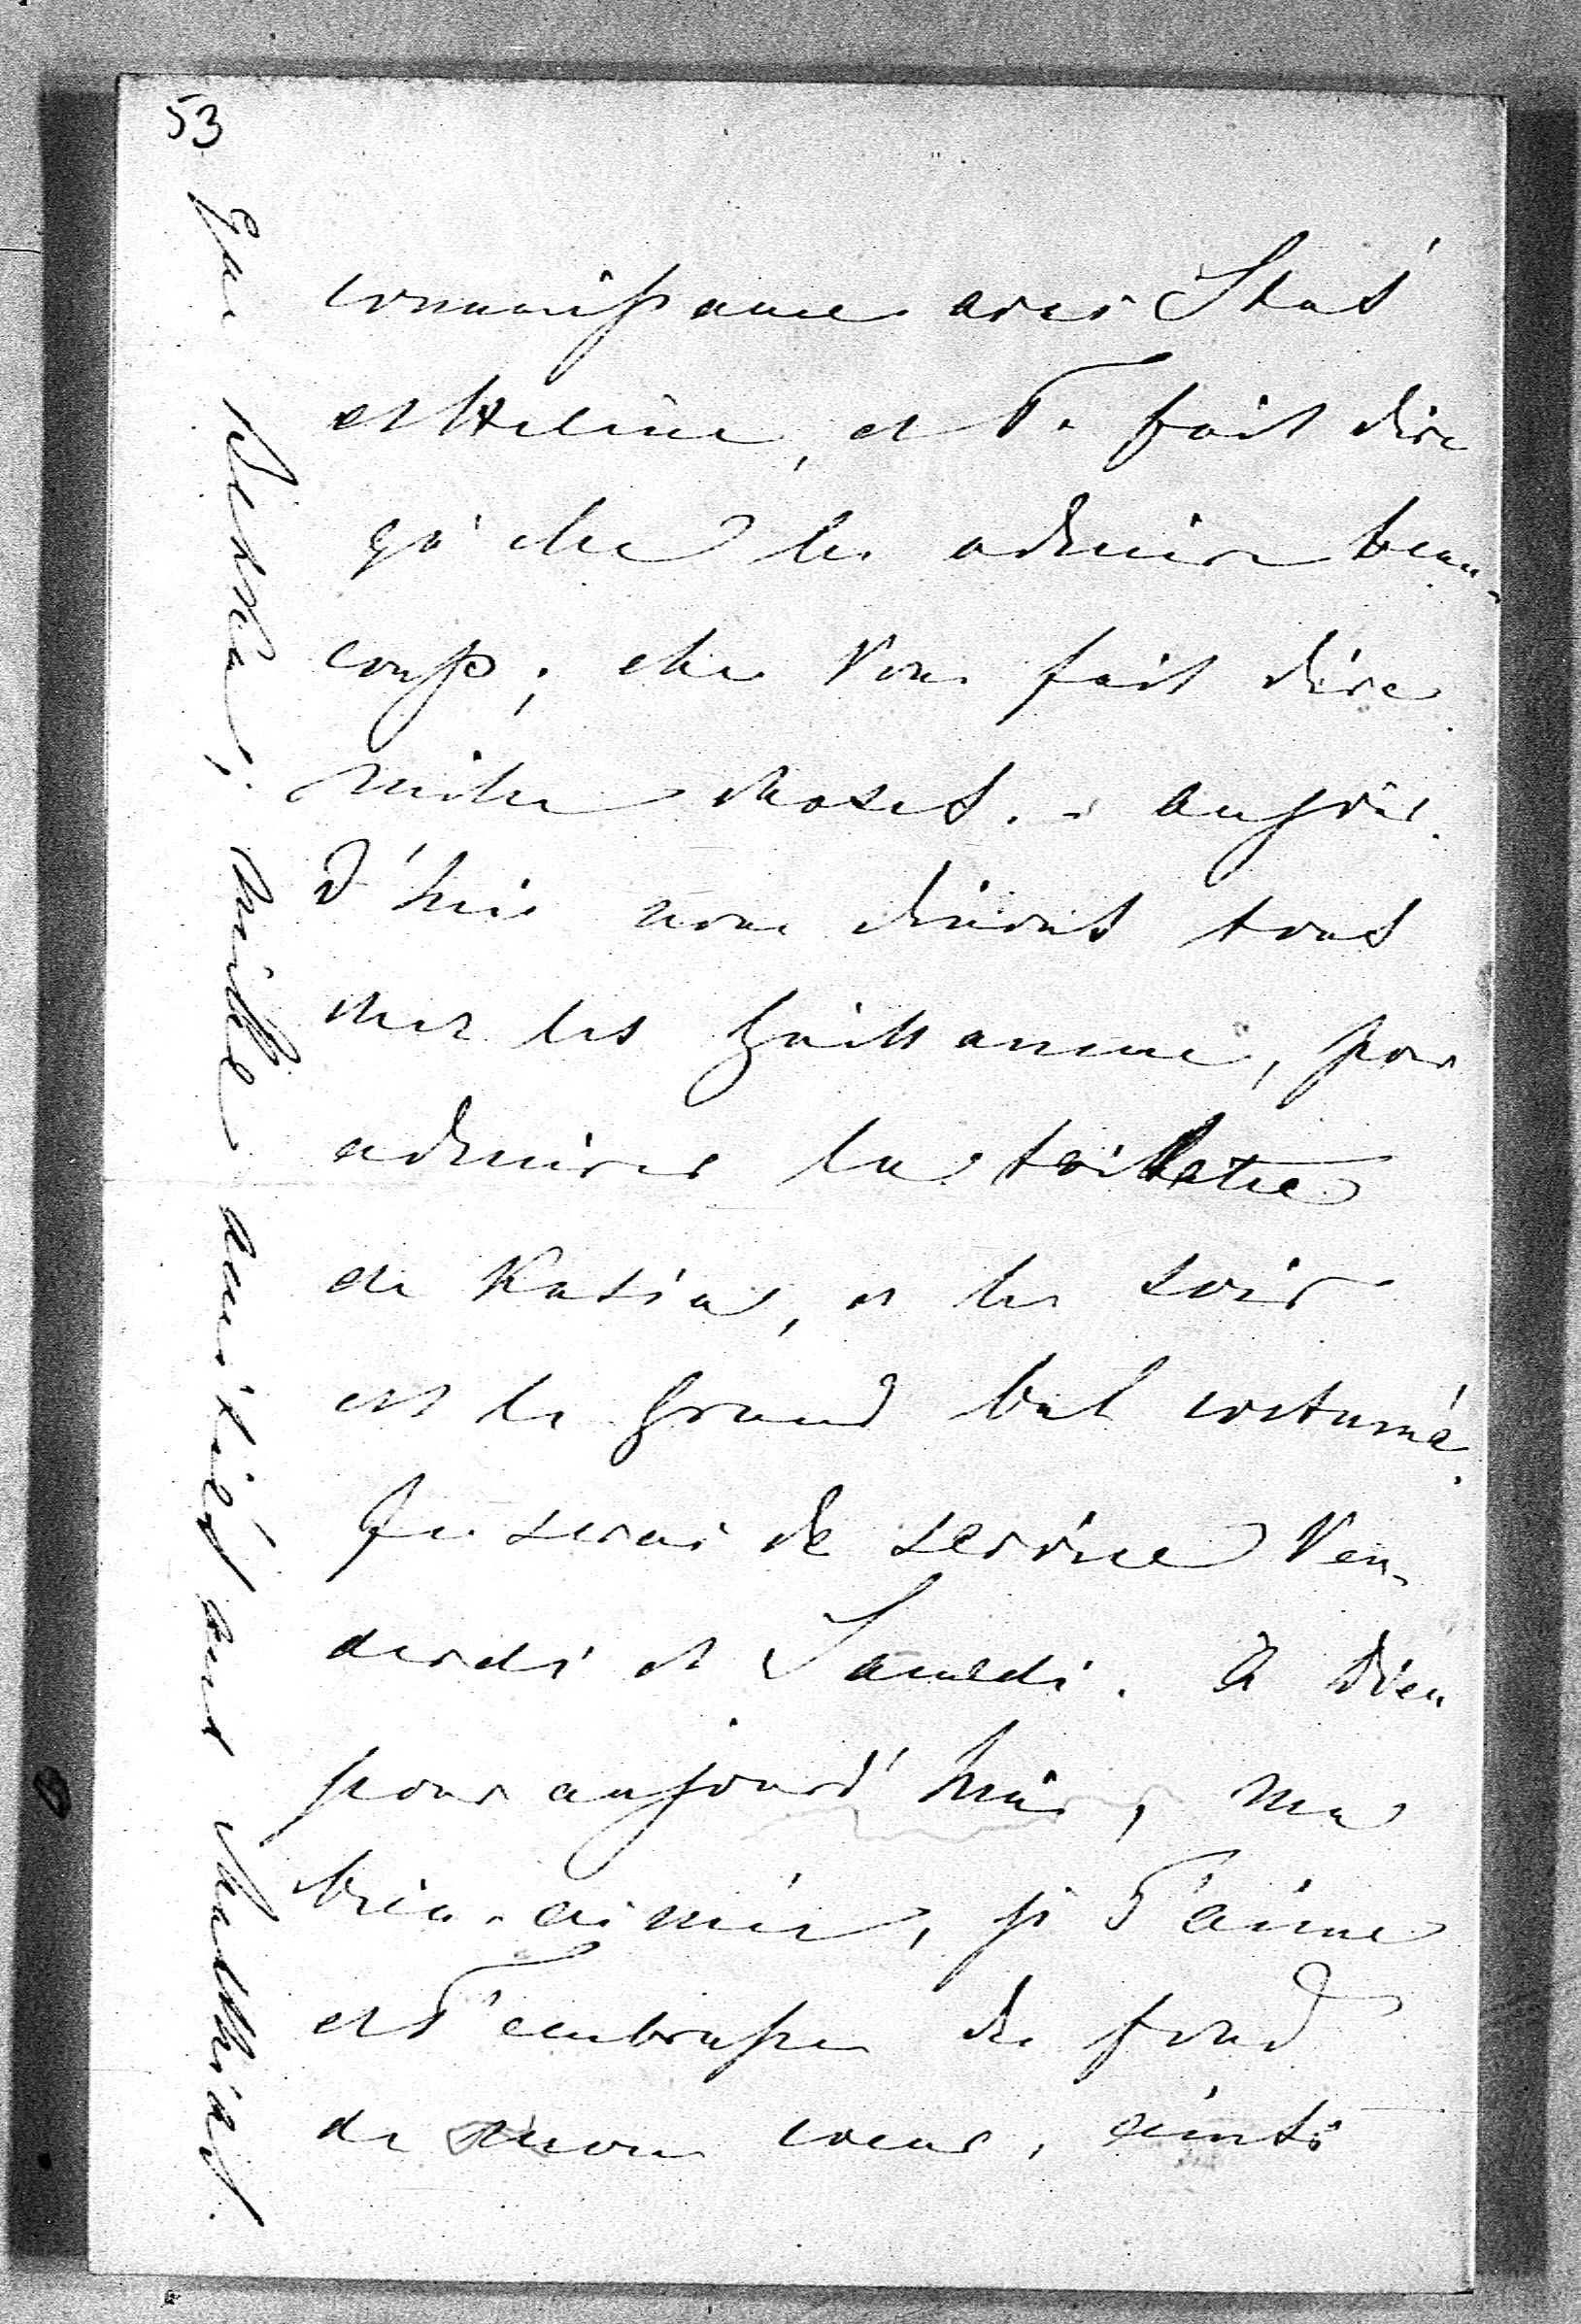 53
connaissance avec Stas
et Hélène, et Te fait dire
qu'elle les admire beau-
coup; elle Vous fait dire
mille choses. - aujour-
d'hui nous dinons tous
chez les Guillaume, pour
admirer la toilette
de Katia, et le soir
est le grand bal costumé.
Je serai de service Ven-
dredi et Samedi. A Dieu
pour aujourd'hui, ma
bien-aimée, je T'aime
et T'embrasse du fond
de mon cœur, ainsi
que mille amitiés aux